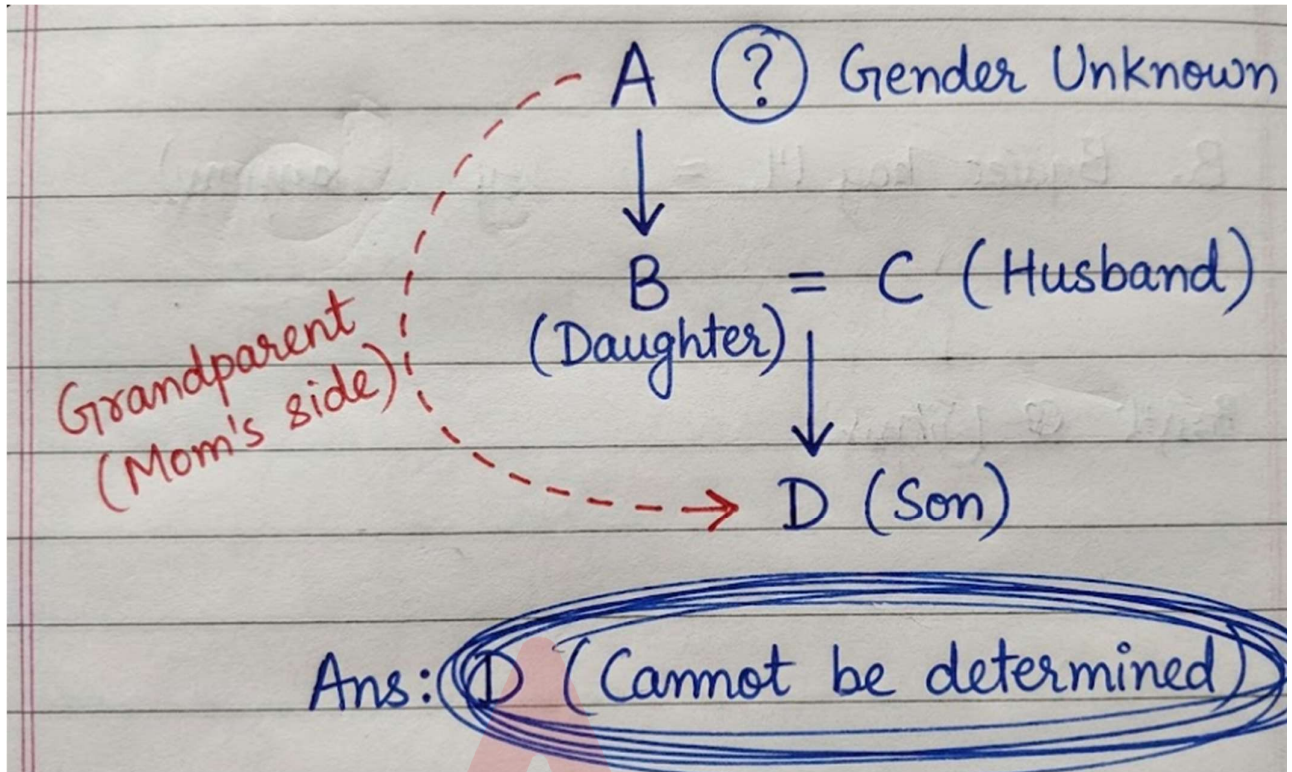 A ? Gender Unknown
B = C (Husband)
(Daughter)
Grandparent
(Mom's side)
D (Son)
Ans: D (Cannot be determined)